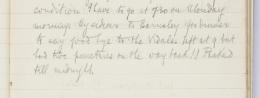 condition. I have to go at 9.30 on Monday
morning. By car to Barnsley
to say good bye to the Vidales left at 9 but
had two punctures on the way back!! Packed
till midnight